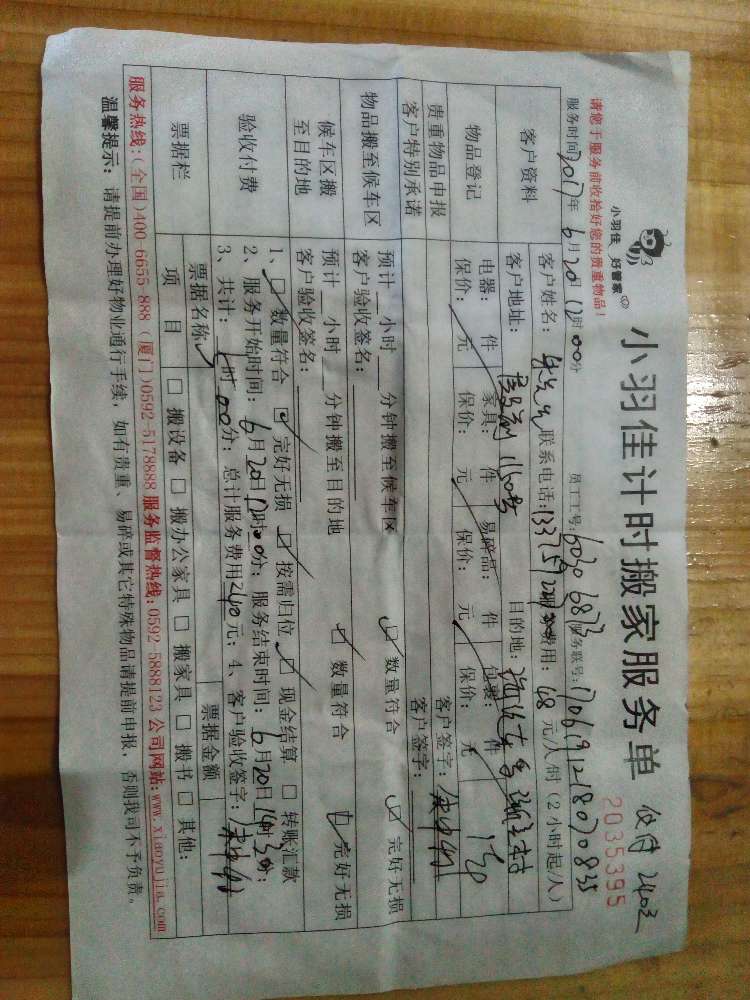 小羽佳 好管家
小羽佳计时搬家服务单 仅付240元
请您于服务前收拾好您的贵重物品!
2035395
服务时间:2017年6月20日12时00分 员工工号:6030 6873 服务联号:
客户资料
客户姓名: 联系电话: 费用:48元/人/时(2小时起/人)
客户地址: 目的地:
物品登记
电器: 件 家具: 件 易碎品: 件 包裹: 件
保价: 元 保价: 元 保价: 元 保价: 元
贵重物品申报
客户特别承诺
客户签字:
客户签字:
物品搬至候车区
预计 小时 分钟搬至候车区 ☑ 数量符合 ☑ 完好无损
客户验收签名:
候车区搬至目的地
预计 小时 分钟搬至目的地 ☑ 数量符合 ☑ 完好无损
客户验收签名:
验收付费
1、☑ 数量符合 ☑ 完好无损 ☑ 按需归位 ☑ 现金结算 □ 转账汇款
2、服务开始时间:6月20日12时00分; 服务结束时间:6月20日14时30分;
3、共计: 时00分; 总计服务费用240元; 4、客户验收签字:
票据栏
票据名称 票据金额
项目 □ 搬设备 □ 搬办公家具 □ 搬家具 □ 搬书 □ 其他:
服务热线:(全国)400-6655-888 (厦门)0592-5178888 服务监督热线:0592-5888123 公司网站:www.xiaoyujia.com
温馨提示: 请提前办理好物业通行手续,如有贵重、易碎或其它特殊物品请提前申报,否则我司不予负责。